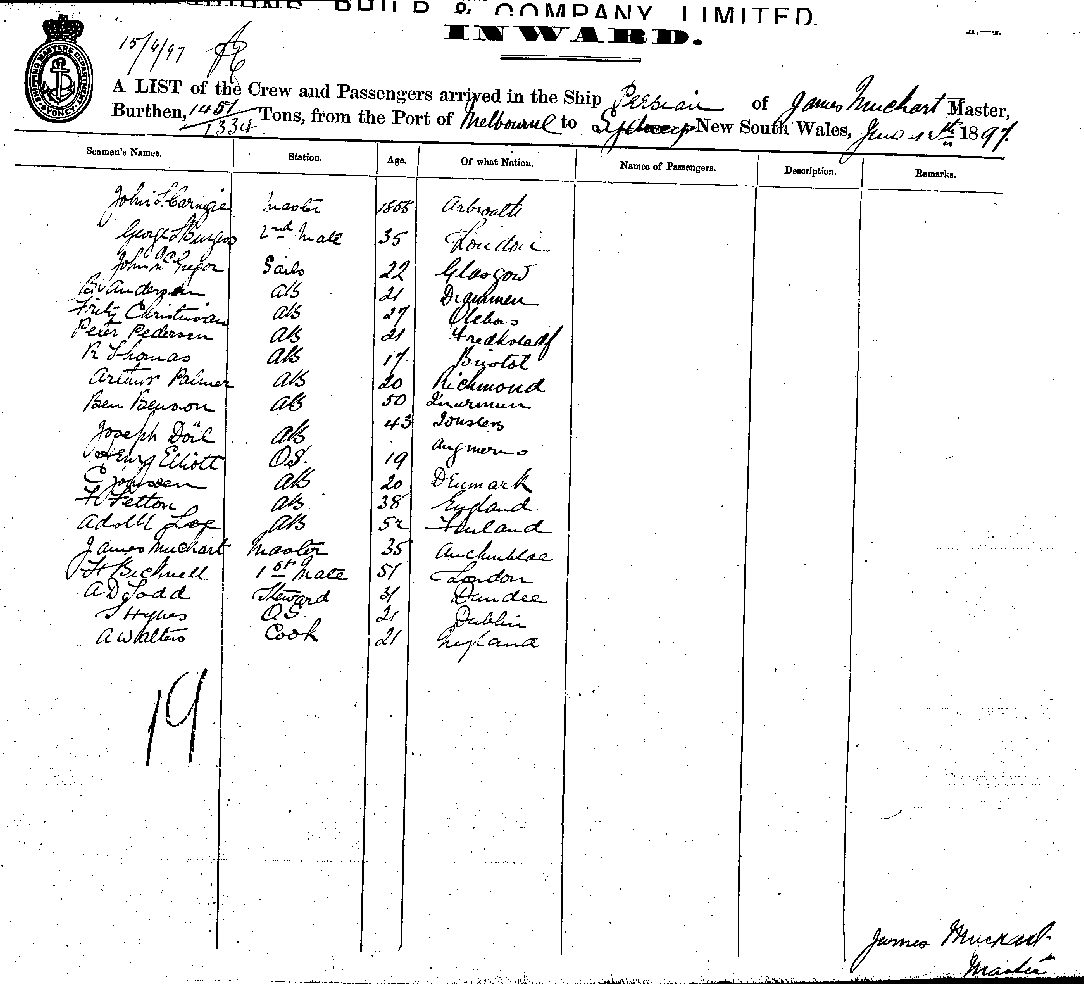 BUILD & COMPANY, LIMITED.
INWARD.
15/6/97
A LIST of the Crew and Passengers arrived in the Ship Persian of James Muchart Master,
Burthen, 1451/1334 Tons, from the Port of Melbourne to New South Wales, June 1897.
Seamen's Names. Station. Age. Of what Nation. Names of Passengers. Description. Remarks.
John S Carnegie Master 1855 Arbroath
George S Burgess 2nd Mate 35 London
John McGregor Sails 22 Glasgow
B Andersen AB 21 Drammen
Fritz Christiansen AB 27
Peter Pedersen AB 21
R Thomas AB 17 Bristol
Arthur Palmer AB 20 Richmond
Ben Benson AB 50
Joseph Doil AB 43
Henry Elliott O.S. 19
AB 20 Denmark
F Fetton AB 38 England
Adolf AB 52 Finland
James Muchart Master 35
H Bicknell 1st Mate 51 London
A D Todd Steward 31 Dundee
S Hynes O.S. 21 Dublin
A Walters Cook 21 England
19
James Muchart
Master